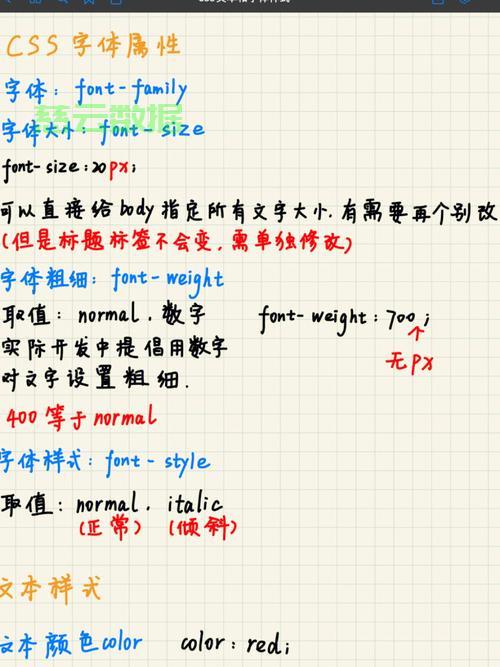 CSS 字体属性
字体: font-family
慈云数据
字体大小: font-size
font-size: 20px;
可以直接给body指定所有文字大小.有需要再个别改
(但是标题标签不会变,需单独修改)
字体粗细: font-weight
取值: normal.数字 font-weight: 700;
实际开发中提倡用数字
无px
对文字设置粗细.
400等于normal
字体样式: font-style
取值: normal. italic
(正常) (倾斜)
文本样式
文本颜色color color: red;